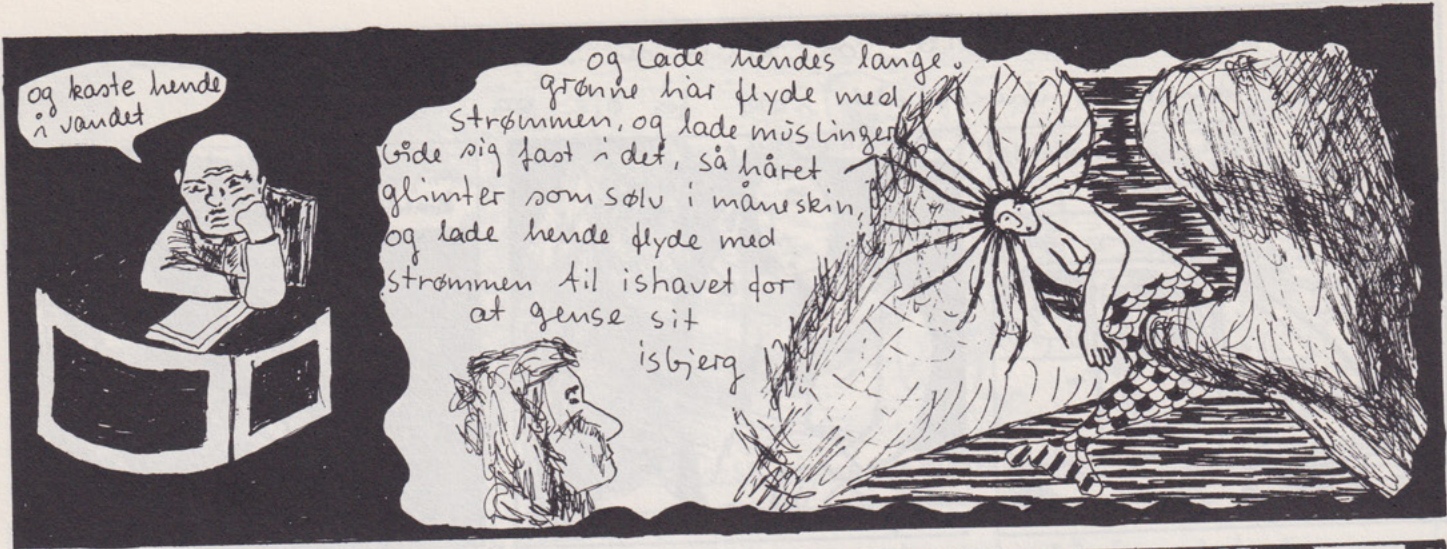 og kaste hende
i vandet
og lade hendes lange.
grønne hår flyde med
strømmen, og lade muslinger
bide sig fast i det, så håret
glimter som sølv i måneskin,
og lade hende flyde med
strømmen til ishavet for
at gense sit
isbjerg